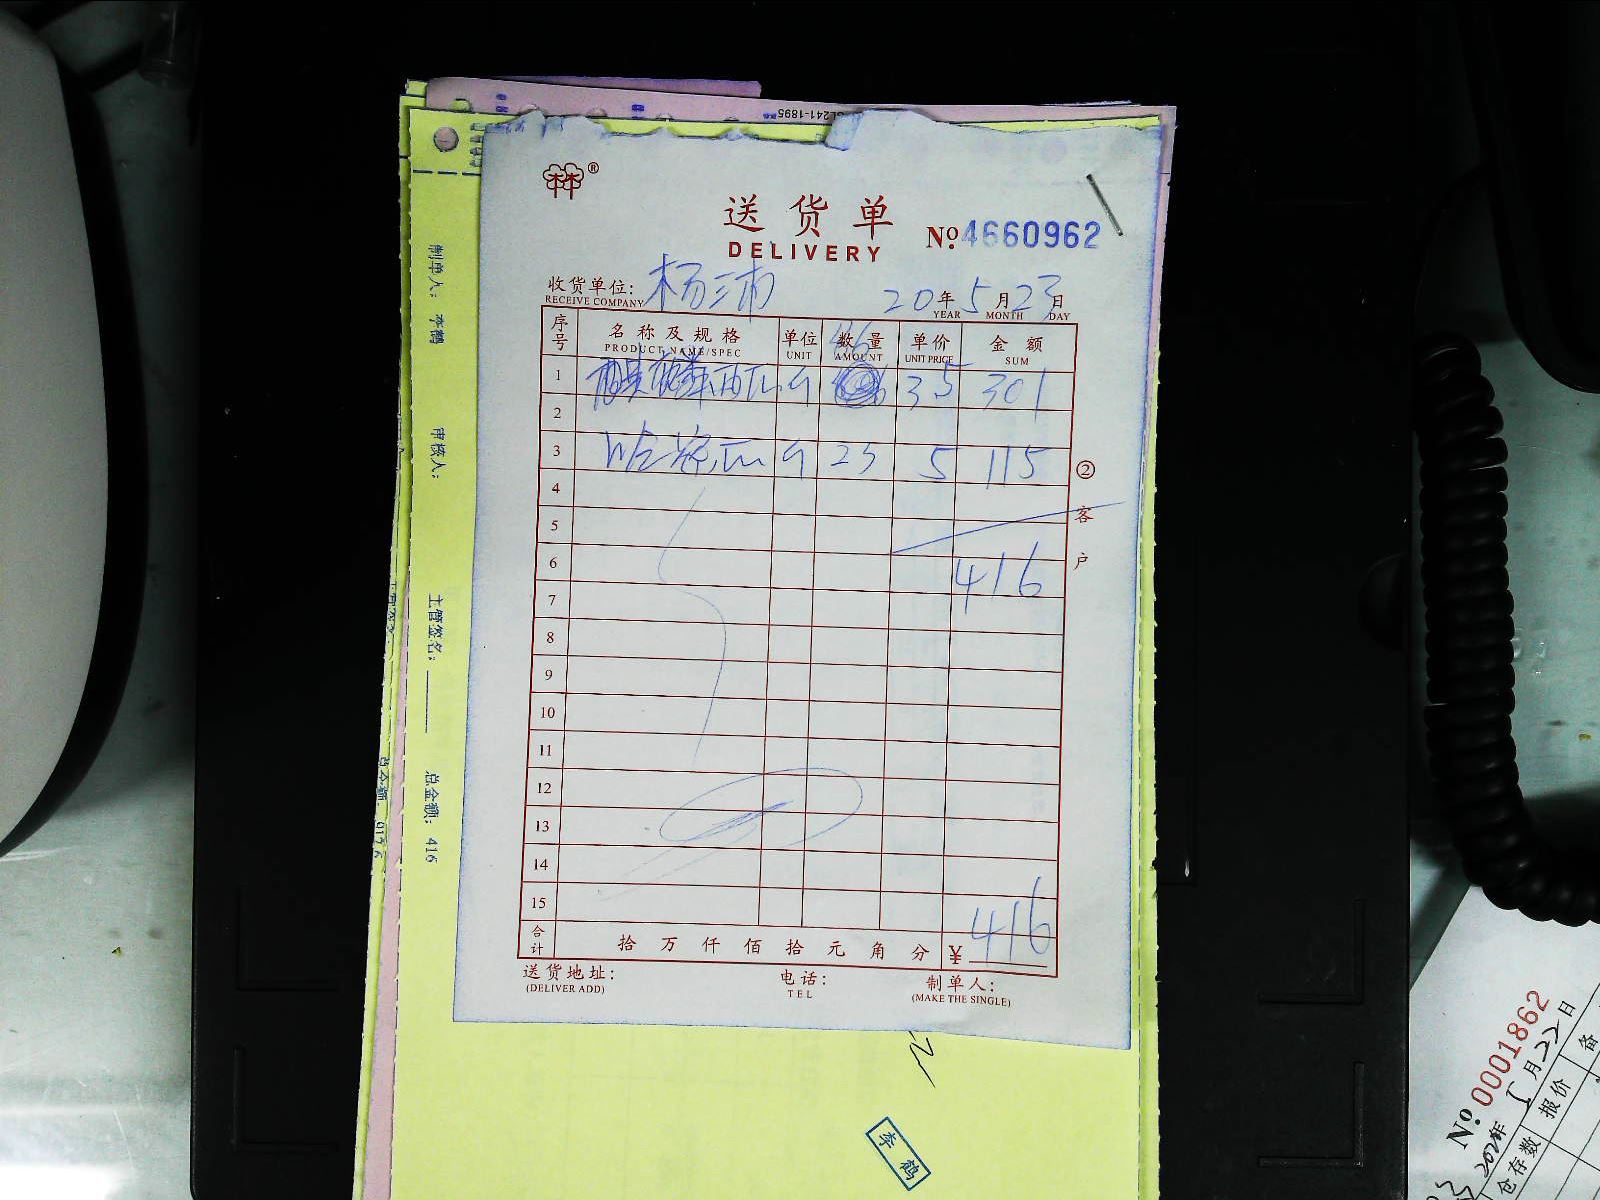 SL241-1895
林®
送货单
DELIVERY
No. 4660962
收货单位：杨
RECEIVE COMPANY
20年5月23日
YEAR MONTH DAY
序号 名称及规格 单位 数量 单价 金额
PRODUCT NAME/SPEC UNIT AMOUNT UNIT PRICE SUM
86
1 35 301
2
3 哈 23 5 115
4
5
6 416
7
8
9
10
11
12
13
14
15
合计 拾万仟佰拾元角分 ¥416
送货地址： 电话： 制单人：
(DELIVER ADD) TEL (MAKE THE SINGLE)
②客户
制单人：李鹤
审核人：
主管签名：
总金额：416
李鹤
No. 0001862
月22日
仓存数 报价 备